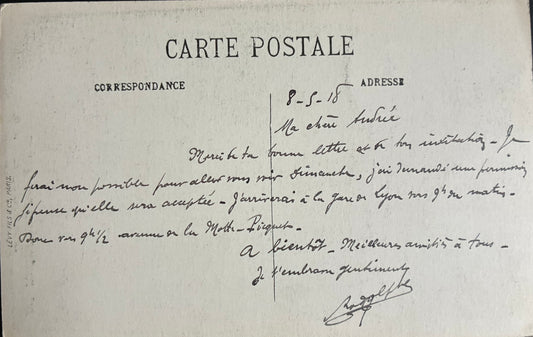 CARTE POSTALE
CORRESPONDANCE
ADRESSE
8-5-18
Ma chère Andrée
Merci de ta bonne lettre et de ton invitation - Je
ferai mon possible pour aller vous voir Dimanche, j'ai demandé une permission
Je pense qu'elle sera acceptée - J'arriverai à la gare de Lyon vers 9h du matin -
Donc vers 9h 1/2 avenue de la Motte-Picquet -
A bientôt - Meilleures amitiés à tous -
Je t'embrasse gentiment
Rodolphe
LEVY FILS & Cie, PARIS